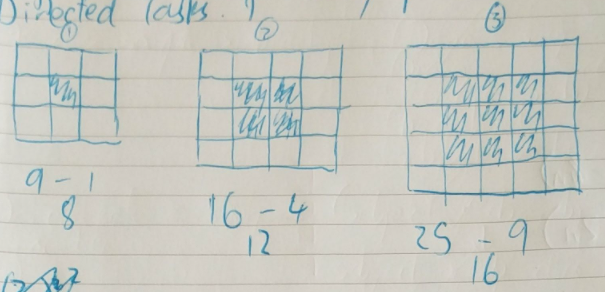 Directed Tasks.
① ② ③
9 - 1
8
16 - 4
12
25 - 9
16